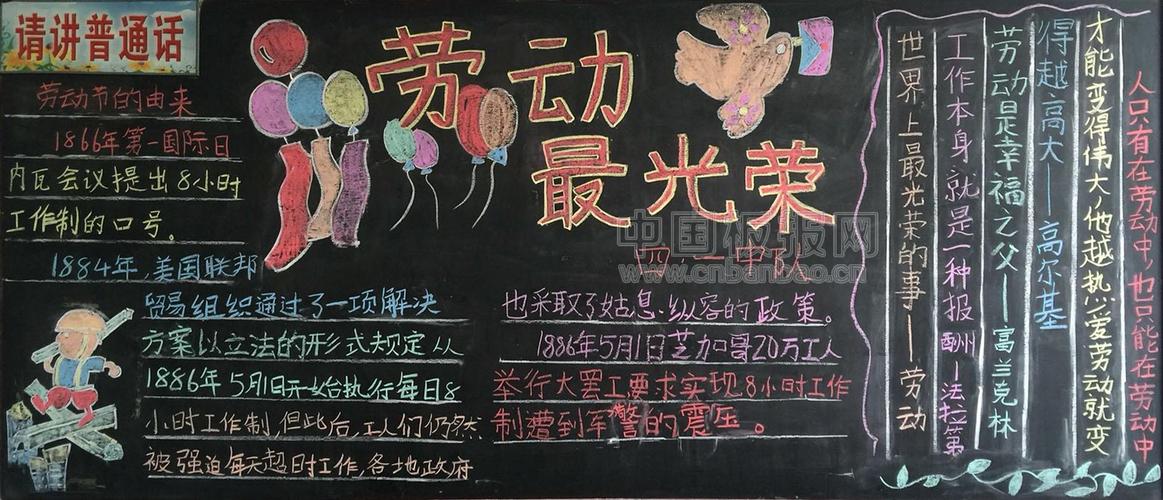 请讲普通话
劳动最光荣
四一中队
劳动节的由来
1866年第一国际日
内瓦会议提出8小时
工作制的口号。
1884年,美国联邦
贸易组织通过了一项解决
方案以立法的形式规定从
1886年5月1日开始执行每日8
小时工作制,但此后,工人们仍然
被强迫每天超时工作,各地政府
也采取了姑息、纵容的政策。
1886年5月1日芝加哥20万工人
举行大罢工要求实现8小时工作
制遭到军警的震压。
人只有在劳动中,也只能在劳动中
才能变得伟大,他越热爱劳动就变
得越高大——高尔基
劳动是幸福之父——富兰克林
工作本身就是一种报酬——法拉第
世界上最光荣的事——劳动
中国板报网
www.cnbanbao.cn